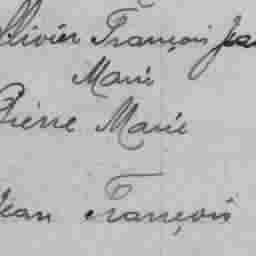 Olivier François Jean
Marie
Pierre Marie
Jean François